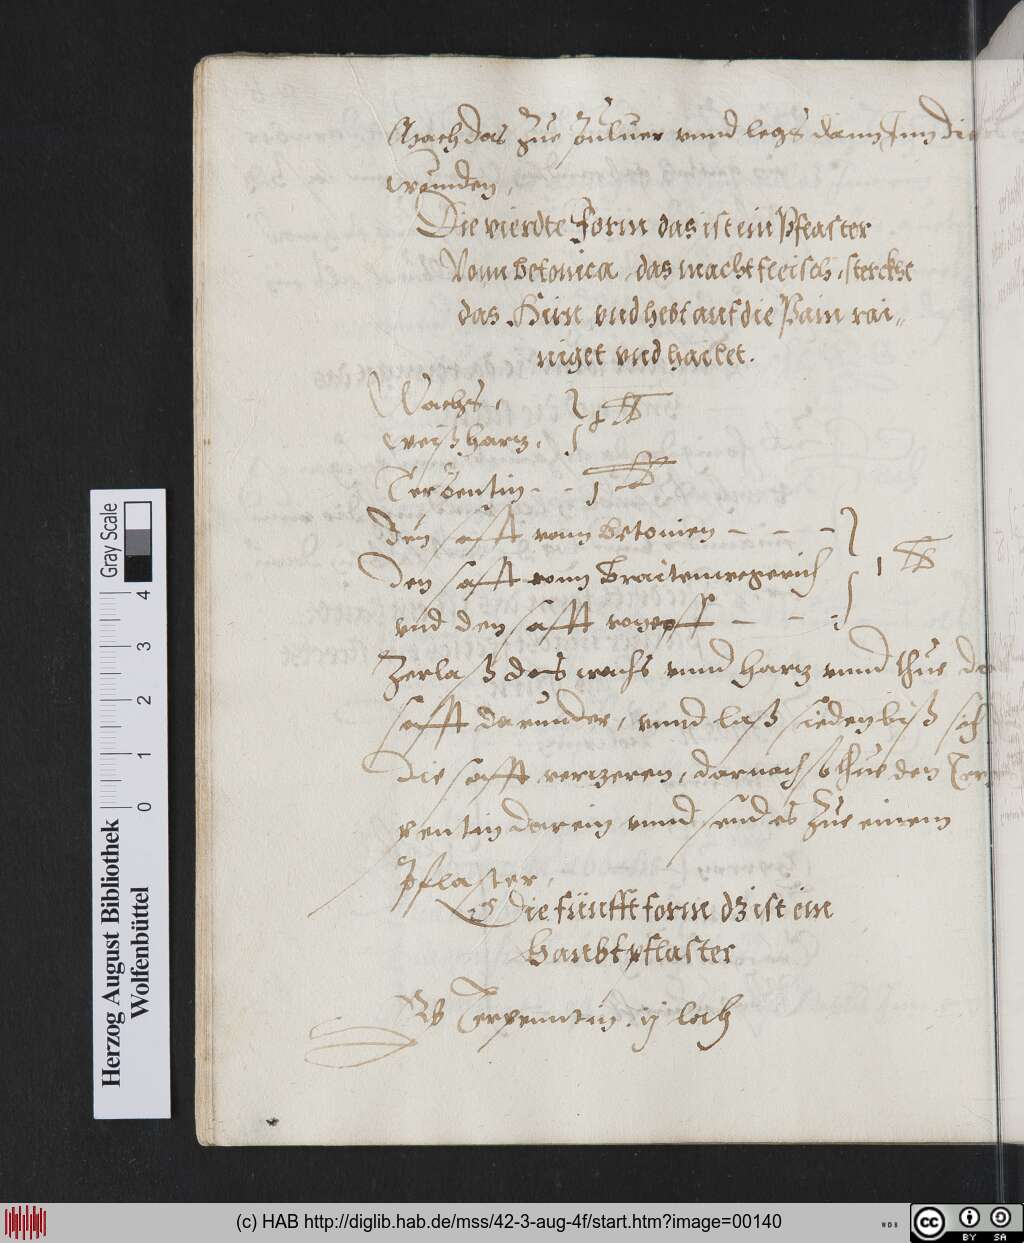 Mach das zue Puluer vnnd legs dann Jnn die
wunden,
Die vierdte Form das ist ein Pflaster
Vonn betonica, das macht fleisch, sterckht
das Hirn vnd hebt auf die Pain rai„
niget vnd hailet.
Wachs,
weiß hartz,
Terbentin - -
den safft vonn betonien - - -
den safft vonn Braitenwegerich 1 ℔
vnd den safft von - - -
Zerlaß das wachs vnnd hartz vnnd thue de
safft darunder, vnnd laß sieden biß sich
die safft verzeren, darnach thue den Ter
pentin darein vnnd seud es zue einem
pflaster,
Die fünfft form dz ist ein
Haubtpflaster
Terpenntin ij loth
Gray Scale
0 1 2 3 4
Herzog August Bibliothek
Wolfenbüttel
(c) HAB http://diglib.hab.de/mss/42-3-aug-4f/start.htm?image=00140
WDB
cc BY SA